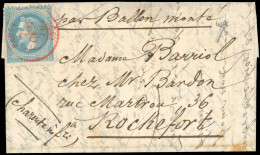 par Ballon monté
Madame Barriol
chez Mr Bardon
rue Martrou 36
Rochefort
(Charente inf.re)